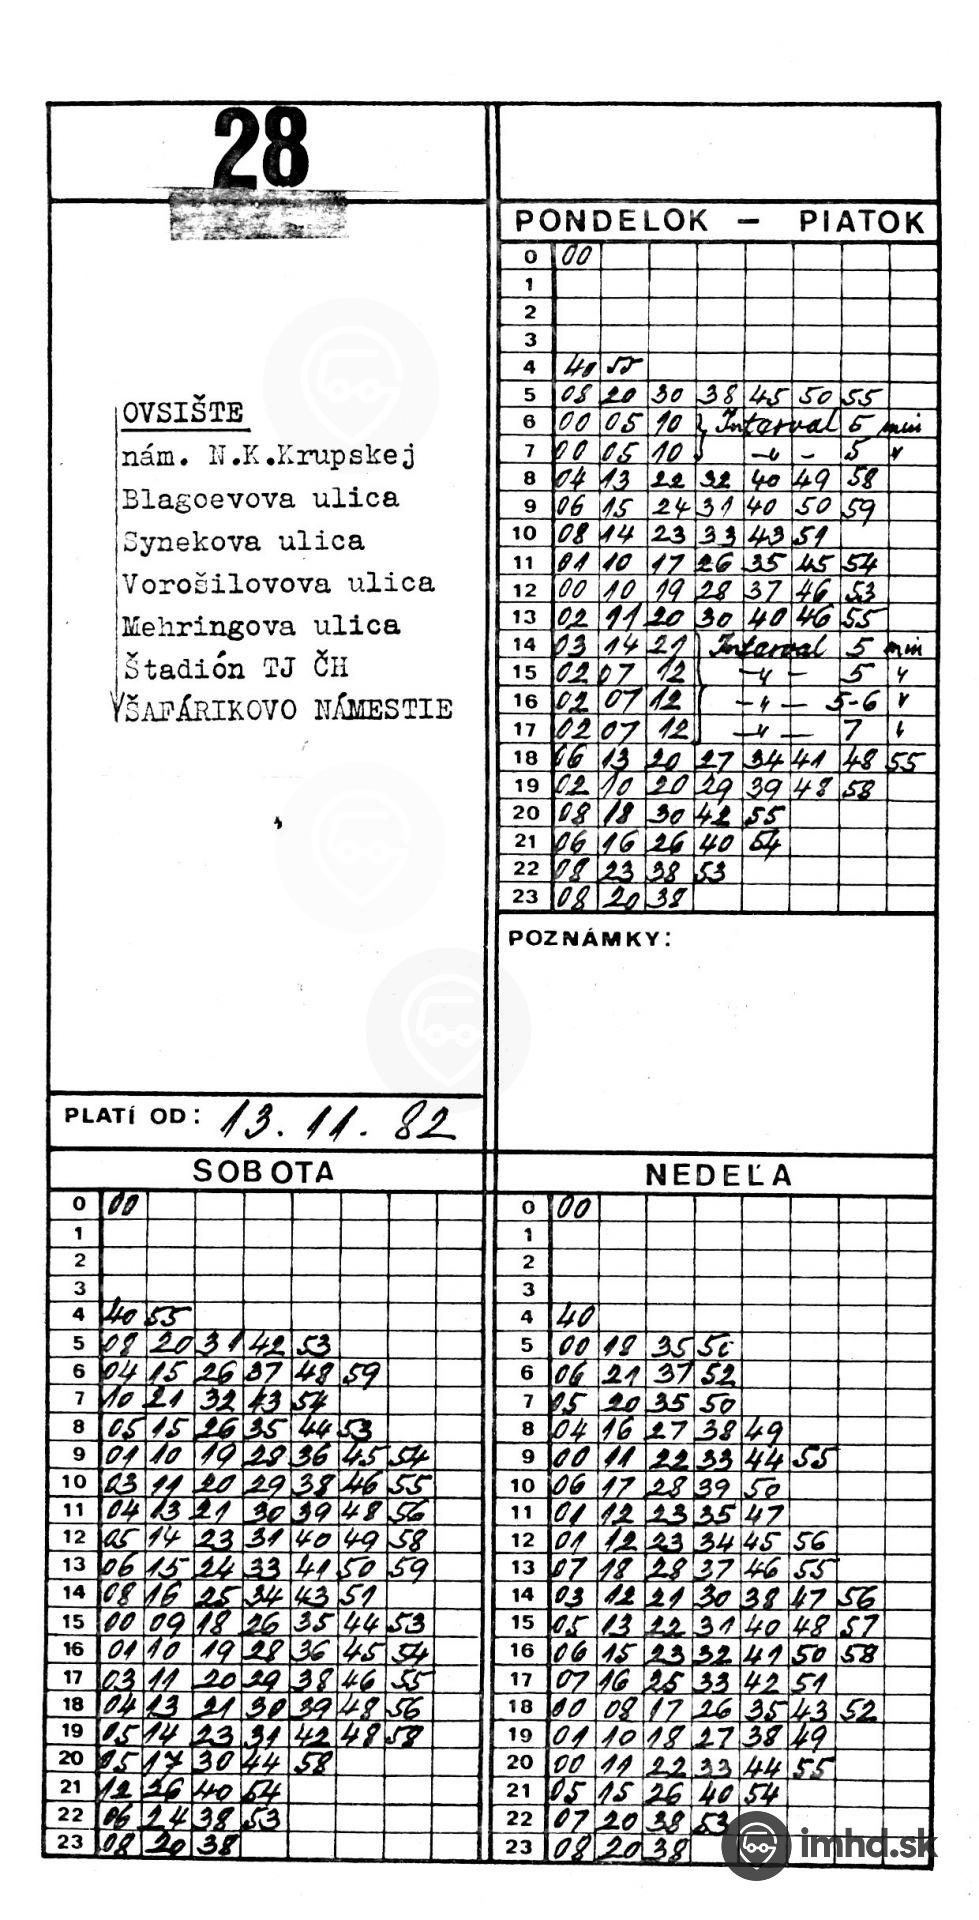 28
OVSIŠTE
nám. N.K.Krupskej
Blagoevova ulica
Synekova ulica
Vorošilovova ulica
Mehringova ulica
Štadión TJ ČH
ŠAFÁRIKOVO NÁMESTIE
PLATÍ OD: 13. 11. 82
PONDELOK – PIATOK
0 00
1
2
3
4 40 55
5 08 20 30 38 45 50 55
6 00 05 10 } Interval 5 min
7 00 05 10 } —„— 5 „
8 04 13 22 32 40 49 58
9 06 15 24 31 40 50 59
10 08 14 23 33 43 51
11 01 10 17 26 35 45 54
12 00 10 19 28 37 46 53
13 02 11 20 30 40 46 55
14 03 14 21 Interval 5 min
15 02 07 12 —„— 5 „
16 02 07 12 —„— 5-6 „
17 02 07 12 —„— 7 „
18 06 13 20 27 34 41 48 55
19 02 10 20 29 39 48 58
20 08 18 30 42 55
21 06 16 26 40 54
22 08 23 38 53
23 08 20 38
POZNÁMKY:
SOBOTA
0 00
1
2
3
4 40 55
5 08 20 31 42 53
6 04 15 26 37 48 59
7 10 21 32 43 54
8 05 15 26 35 44 53
9 01 10 19 28 36 45 54
10 03 11 20 29 38 46 55
11 04 13 21 30 39 48 56
12 05 14 23 31 40 49 58
13 06 15 24 33 41 50 59
14 08 16 25 34 43 51
15 00 09 18 26 35 44 53
16 01 10 19 28 36 45 54
17 03 11 20 29 38 46 55
18 04 13 21 30 39 48 56
19 05 14 23 31 42 48 58
20 05 17 30 44 58
21 12 26 40 54
22 06 24 38 53
23 08 20 38
NEDEĽA
0 00
1
2
3
4 40
5 00 18 35
6 06 21 37 52
7 05 20 35 50
8 04 16 27 38 49
9 00 11 22 33 44 55
10 06 17 28 39 50
11 01 12 23 35 47
12 01 12 23 34 45 56
13 07 18 28 37 46 55
14 03 12 21 30 38 47 56
15 05 13 22 31 40 48 57
16 06 15 23 32 41 50 58
17 07 16 25 33 42 51
18 00 08 17 26 35 43 52
19 01 10 18 27 38 49
20 00 11 22 33 44 55
21 05 15 26 40 54
22 07 20 38 53
23 08 20 38
imhd.sk